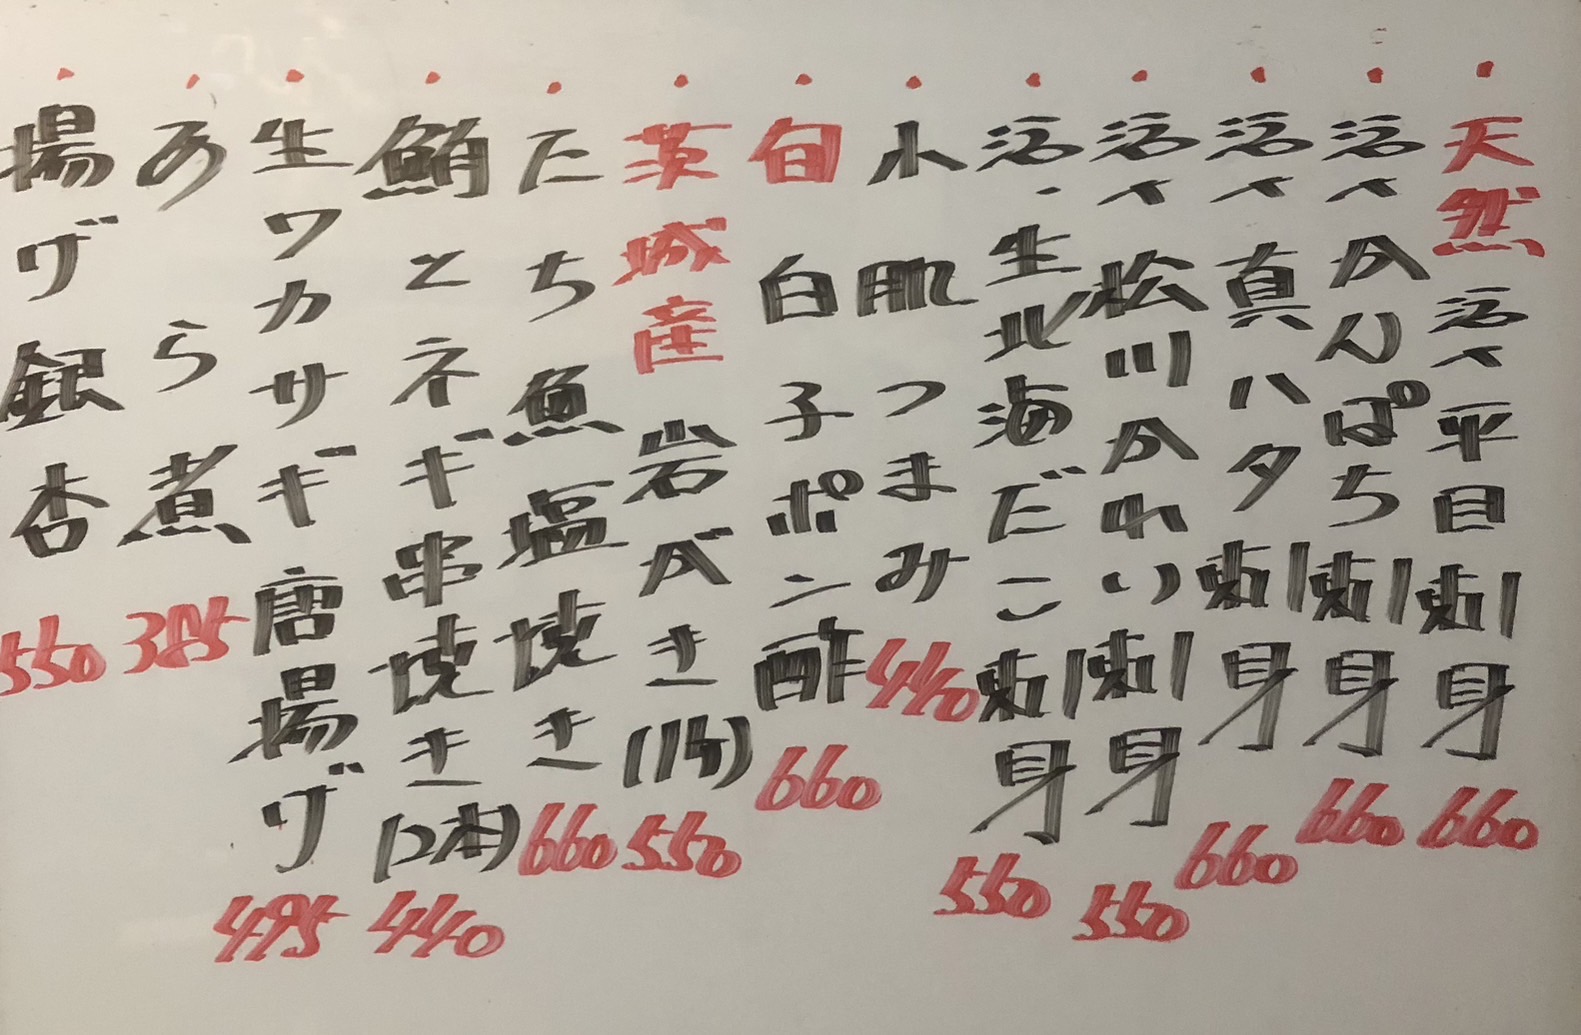 ・天然活〆平目刺身 660
・活〆かんぱち刺身 660
・活〆真ハタ刺身 660
・活〆松川かれい刺身 550
・活・生北海だこ刺身 550
・小肌つまみ 440
・旬白子ポン酢 660
・茨城産岩がき(1ケ) 550
・たち魚塩焼き 660
・鮪とネギ串焼き(2本) 440
・生ワカサギ唐揚げ 495
・あら煮 385
・揚げ銀杏 550